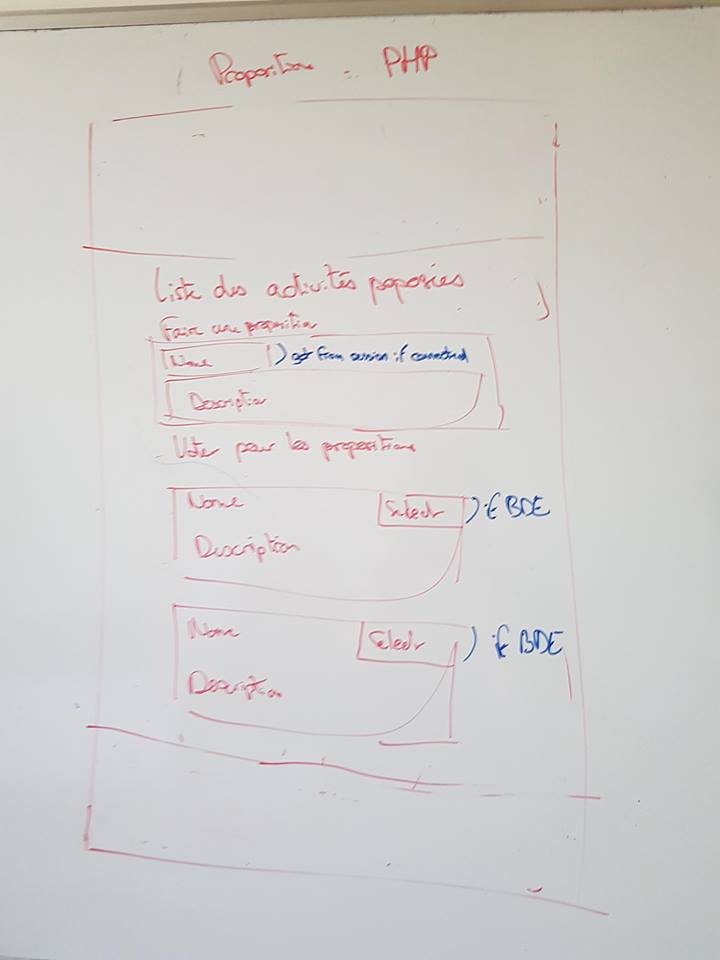 Propositions . PHP
Liste des activités poposées
Faire une proposition
Name ) get from session if connected
Description
Voter pour les propositions
Name Select ) if BDE
Description
Name Select ) if BDE
Description